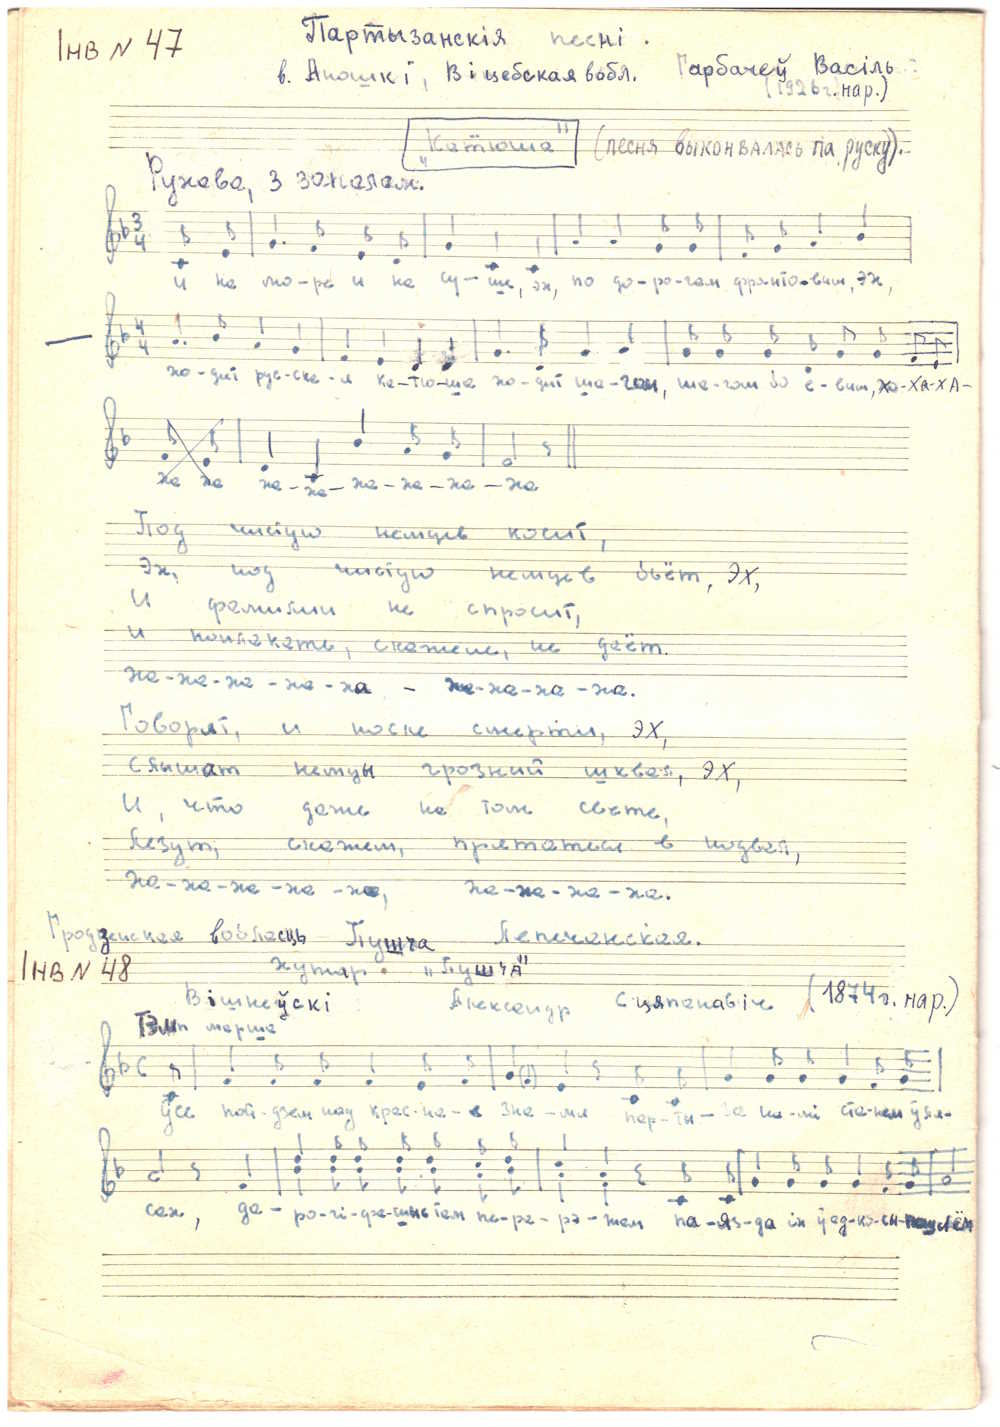 Інв N 47
Партызанскія песні.
в. Аношкі, Віцебская вобл. Гарбачеў Васіль
(1926 г. нар.)
„Катюша" (песня выконвалась па руску).
Рухава, з запалам.
3/4
И на мо-ре и на су-ше, эх, по до-ро-гам фронто-вым, эх,
4/4
хо-дит рус-ска-я Ка-тю-ша хо-дит ша-гом, ша-гом бо е-вым, ха-ха-ха-
ха ха ха-ха-ха-ха-ха-ха
Под чистую немцев косит,
Эх, под чистую немцев бьёт, эх,
И фамилии не спросит,
И поплакать, скажем, не даёт.
Ха-ха-ха-ха-ха - ха-ха-ха-ха.
Говорят, и после смерти, эх,
Слышат немцы грозный шквал, эх,
И, что даже на том свете,
Лезут, скажем, прятаться в подвал,
Ха-ха-ха-ха-ха, ха-ха-ха-ха.
Гродзенская вобласць Пушча Ліпічанская.
Інв N 48 хутар „Пушча"
Вішнеўскі Александр Сцяпанавіч (1874 г. нар.)
Тэмп марша
Ўсе пой-дзем пад крас-на-е зна-мя пар-ты-за на-мі ста-нем ў ля-
сах, да-ро-гі-фа-шыстам пе-ра-рэ-жам па-яз-да іх ў ад-ко-сы